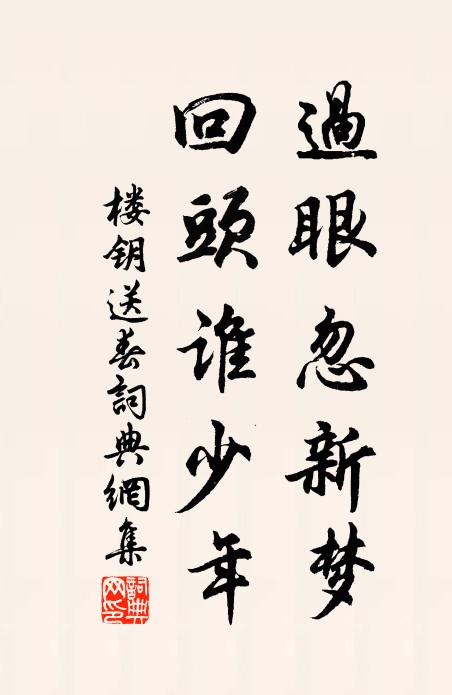 過眼忽新梦
回頭谁少年
楼钥送春詞典網集
詞典网印